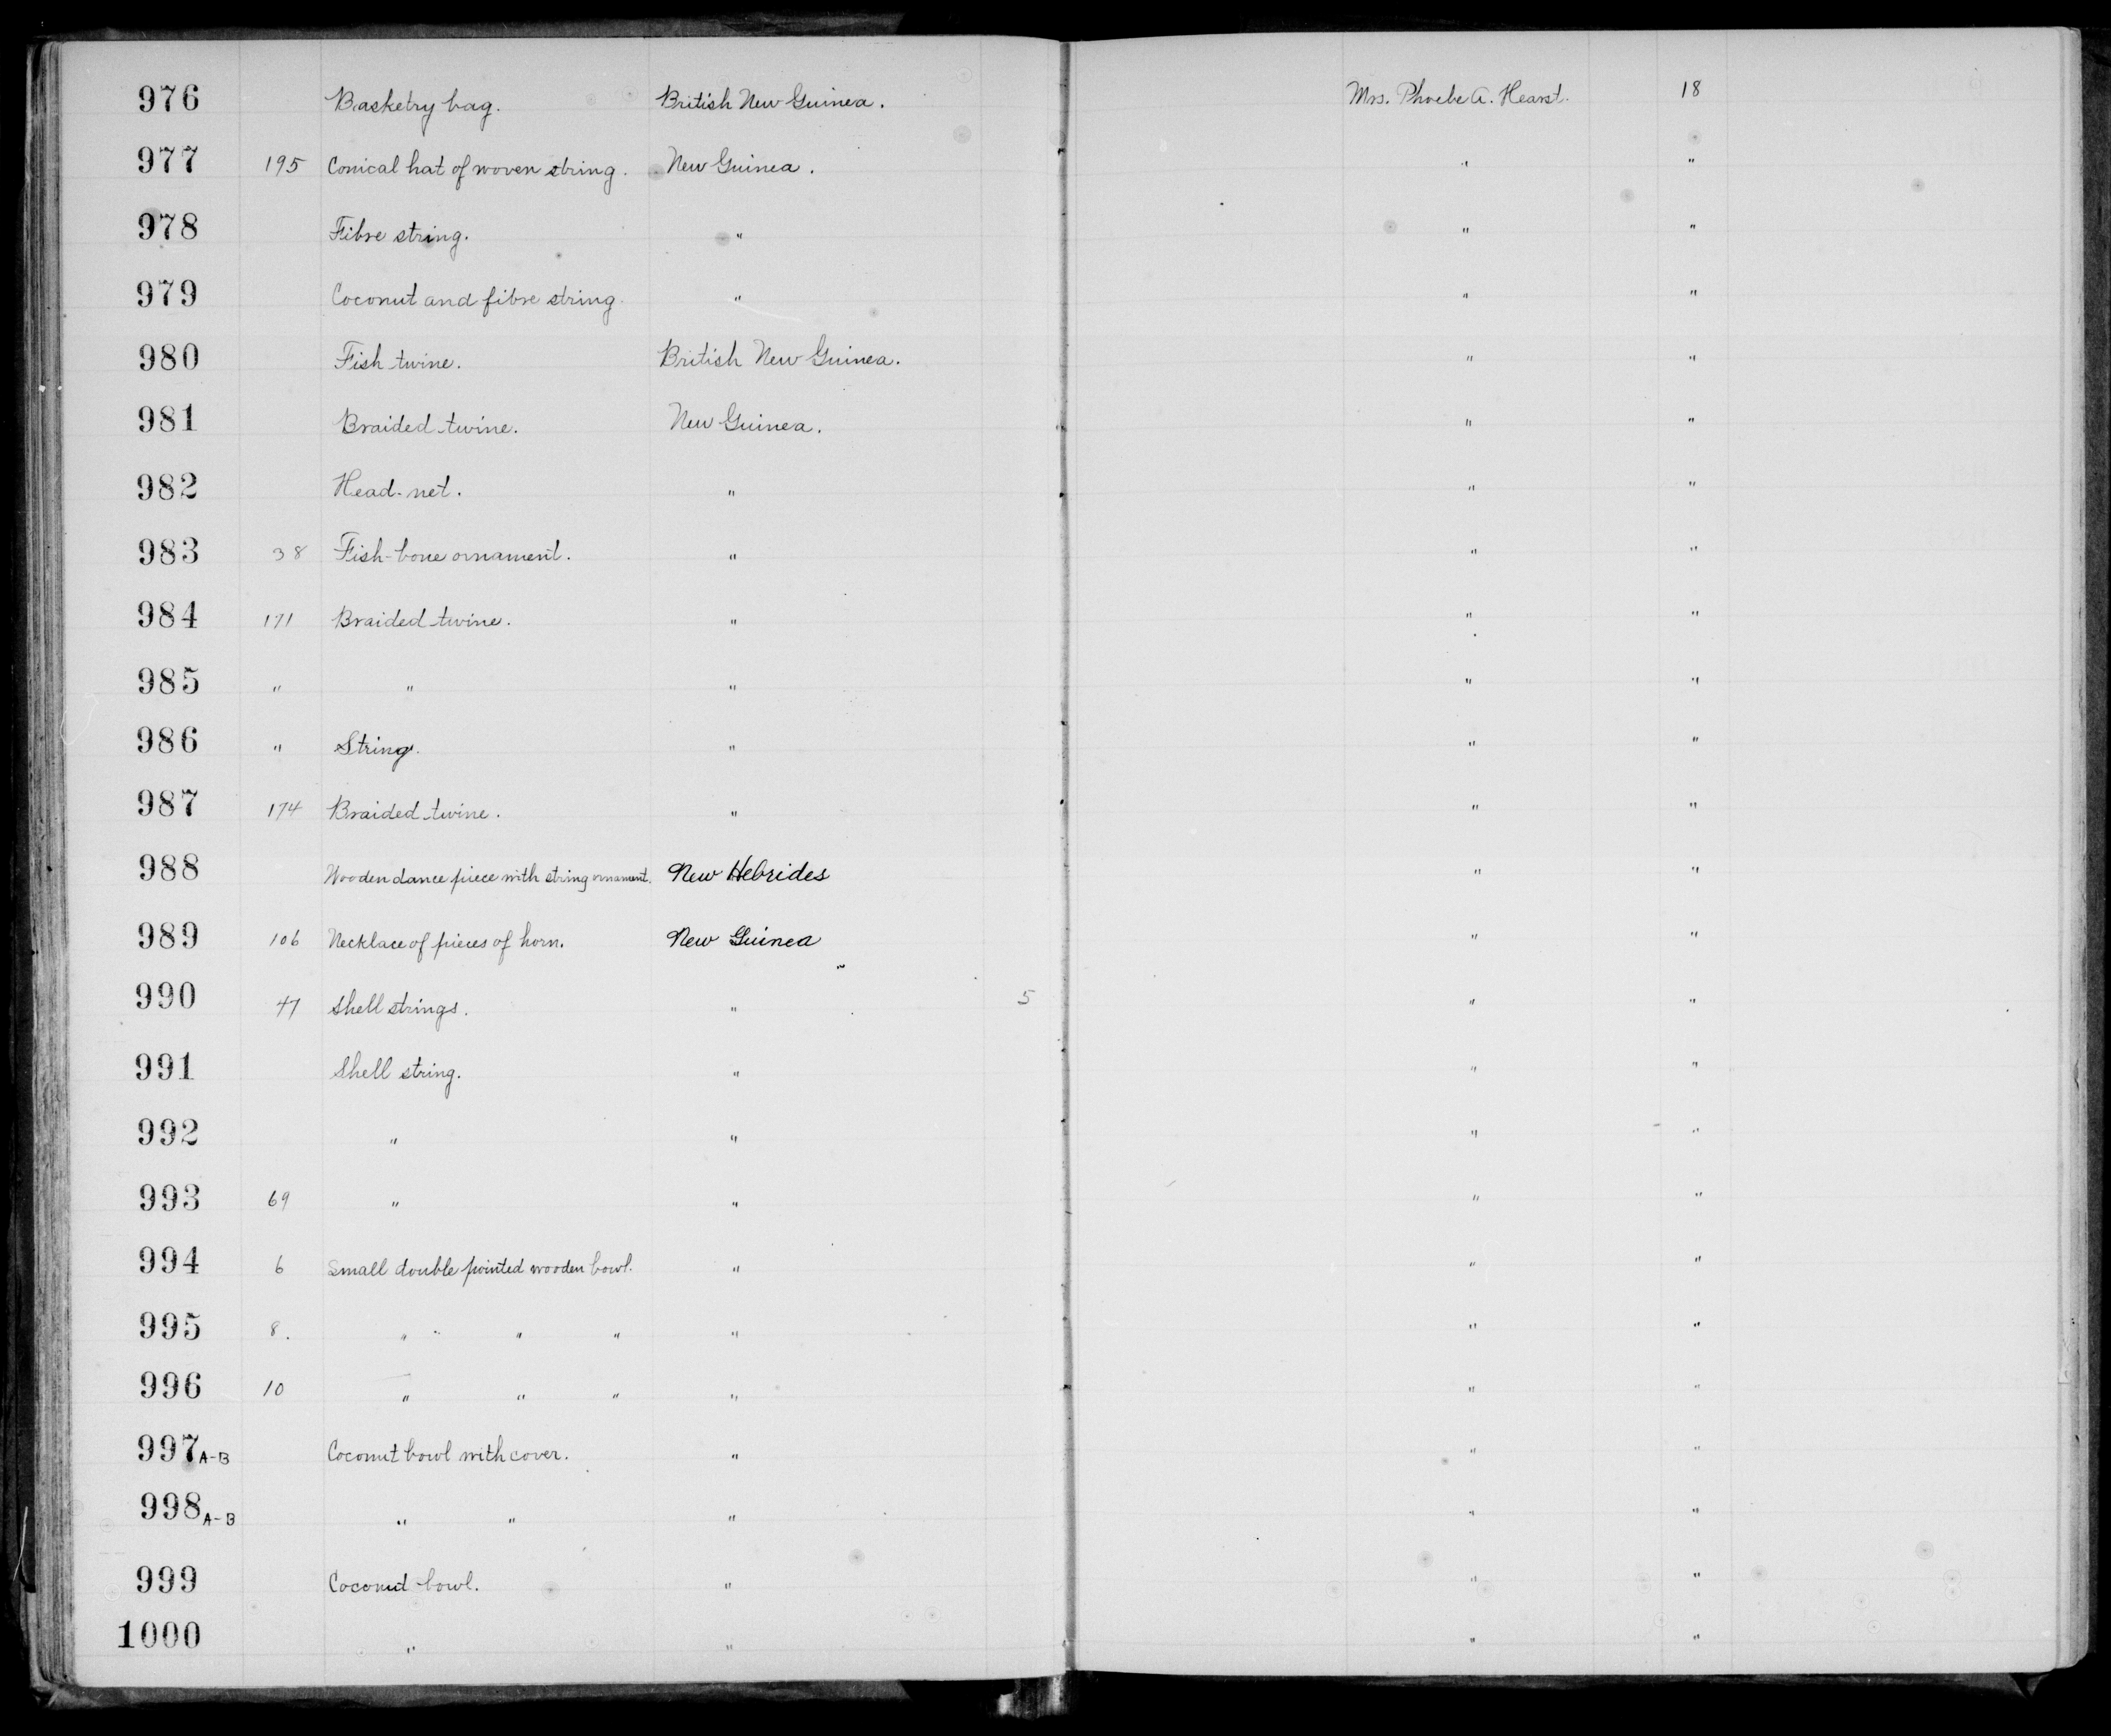 976 Basketry bag. British New Guinea. Mrs. Phoebe A. Hearst. 18
977 195 Conical hat of woven string. New Guinea. " "
978 Fibre string. " " "
979 Coconut and fibre string. " " "
980 Fish twine. British New Guinea. " "
981 Braided twine. New Guinea. " "
982 Head-net. " " "
983 38 Fish-bone ornament. " " "
984 171 Braided twine. " " "
985 " " " " "
986 " String. " " "
987 174 Braided twine. " " "
988 Wooden dance piece with string ornament. New Hebrides " "
989 106 Necklace of pieces of horn. New Guinea " "
990 47 Shell strings. " 5 " "
991 Shell string. " " "
992 " " " "
993 69 " " " "
994 6 Small double pointed wooden bowl. " " "
995 8. " " " " " " "
996 10 " " " " " "
997 A-B Coconut bowl with cover. " " "
998 A-B " " " " "
999 Coconut bowl. " " "
1000 " " " "